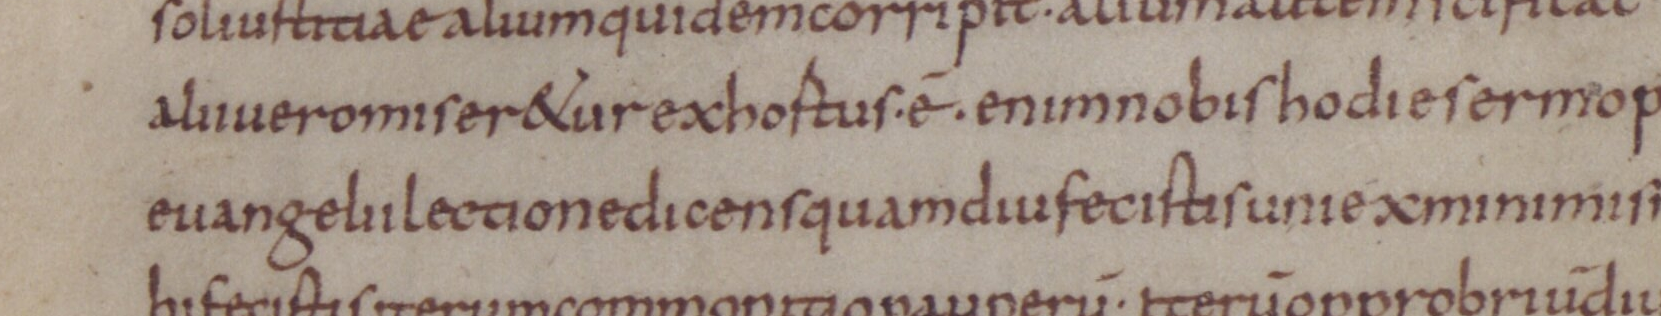 soliustitiae aliumquidemcorripit· aliumautem
aliiueromiser&ur exhostus·ē· enimnobishodiesermo p
euangeliilectionedicensquamdiufecistisuniexminimis
bifecistisiterumcommonitiopauperū· Iterūopprobriūdiu